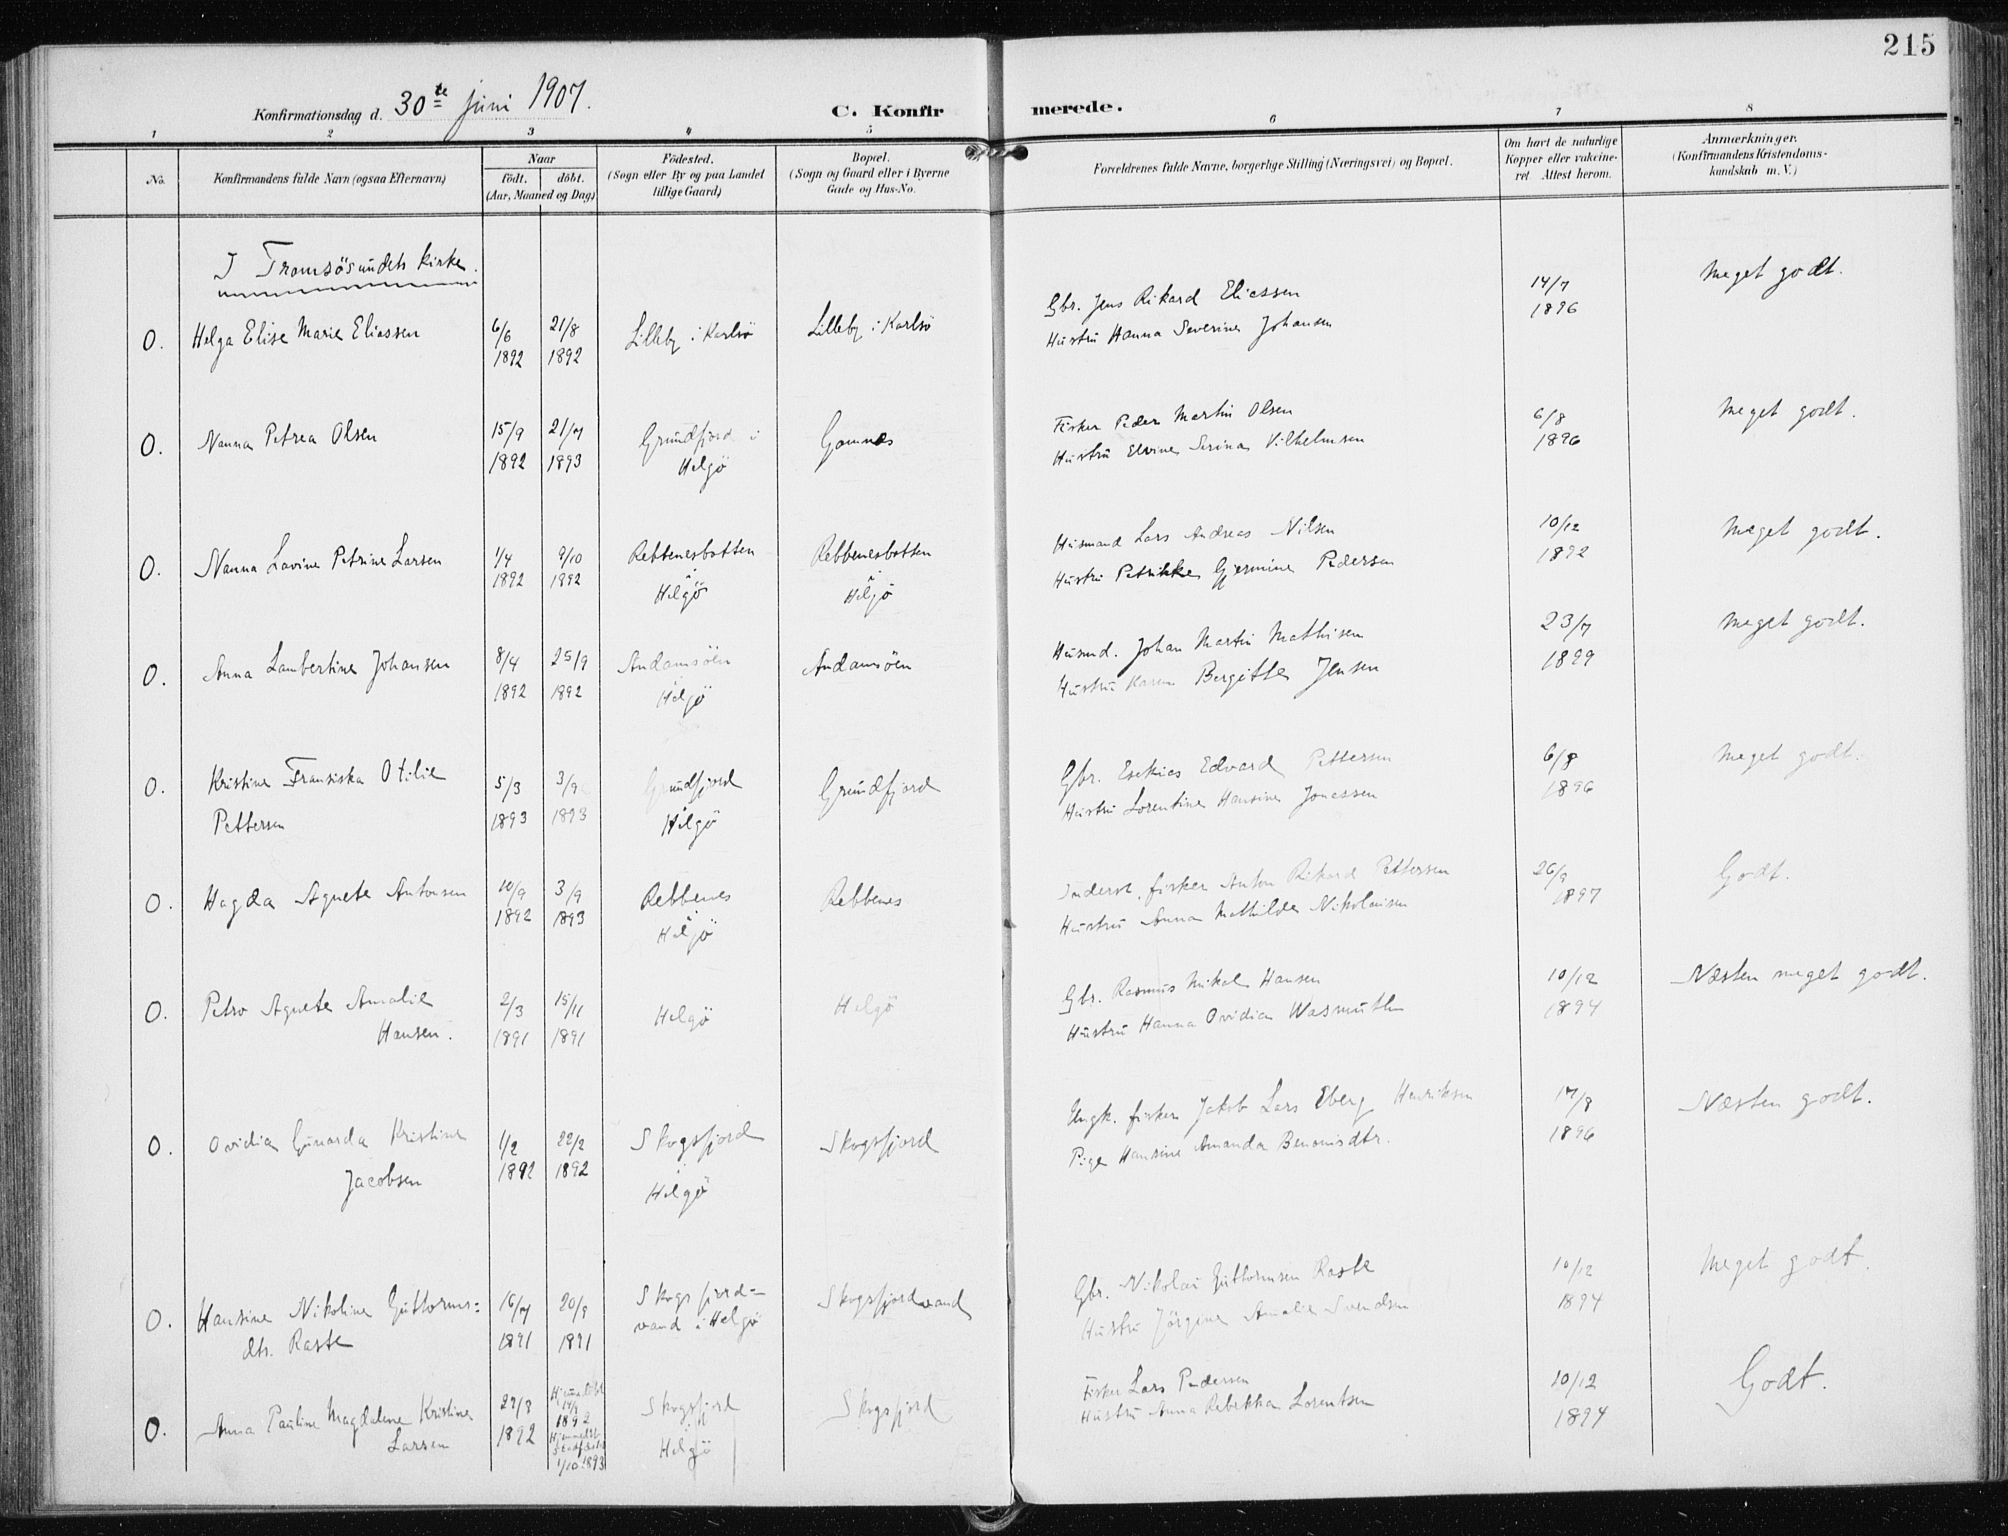 215
Konfirmationsdag d. 30te juni 1907.
C. Konfirmerede.
1 2 3 4 5 6 7 8
No.
Konfirmandens fulde Navn (ogsaa Efternavn)
Naar
födt. döbt.
(Aar, Maaned og Dag)
Födested.
(Sogn eller By og paa Landet
tillige Gaard)
Bopæl.
(Sogn og Gaard eller i Byerne
Gade og Hus-No.
Forældrenes fulde Navne, borgerlige Stilling (Næringsvei) og Bopæl.
Om havt de naturlige
Kopper eller vaccine-
ret Attest herom.
Anmærkninger.
(Konfirmandens Kristendoms-
kundskab m. V.)
I Tromsösundets kirke.
O. Helga Elise Marie Eliassen 6/6 1892 21/8 1892 Lilleby i Karlsö Lilleby i Karlsö
Gbr. Jens Rikard Eliassen
Hustru Hanna Severine Johansen
14/7 1896 Meget godt.
O. Nanna Petrea Olsen 15/9 1892 21/7 1893 Grundfjord i
Helgö Gamnes
Fisker Peder Martin Olsen
Hustru Elvine Serina Vilhelmsen
6/8 1896 Meget godt.
O. Nanna Lovine Petrine Larsen 1/4 1892 9/10 1892 Rebbenesbotten
i
Helgö Rebbenesbotten
i
Helgö
Husmand Lars Andreas Nilsen
Hustru Petrikke Gjermine Pedersen
10/12 1892 Meget godt.
O. Anna Lambertine Johansen 8/4 1892 25/9 1892 Andamsöen
i
Helgö Andamsöen
Husmd. Johan Martin Mathisen
Hustru Karen Bergitte Jensen
23/7 1899 Meget godt.
O. Kristine Fransiska Otilie
Pettersen 5/3 1893 3/9 1893 Grundfjord
i
Helgö Grundfjord
Gbr. Esekias Edvard Pettersen
Hustru Lorentine Hansine Jonassen
6/8 1896 Meget godt.
O. Hagda Agnete Antonsen 10/9 1892 3/9 1893 Rebbenes
i
Helgö Rebbenes
Inderst. fisker Anton Rikard Pettersen
Hustru Anna Mathilde Nikolaisen
26/9 1897 Godt.
O. Petra Agnete Amalie
Hansen. 2/3 1891 15/11 1891 Helgö Helgö
Gbr. Rasmus Nikol Hansen
Hustru Hanna Ovidia Wasmuth
10/12 1894 Næsten meget godt.
O. Ovidia Gunarda Kristine
Jacobsen 1/2 1892 22/2 1892 Skogsfjord
i
Helgö Skogsfjord
Ungk. fisker Jakob Lars Eberg Henriksen
Pige Hansine Amanda Benonisdtr.
17/8 1896 Næsten godt.
O. Hansine Nikoline Guttorms-
dtr. Raste 16/7 1891 20/9 1891 Skogsfjord-
vand i Helgö Skogsfjordvand
Gbr. Nikolai Guttormsen Raste
Hustru Jörgine Amalie Svendsen
10/12 1894 Meget godt.
O. Anna Pauline Magdalene Kristine
Larsen 27/3 1892 Hjemmedöbt
1892
Stadfæstet
1/10 1893 Skogsfjord
i
Helgö Skogsfjord
Fisker Lars Pedersen
Hustru Anna Rebekka Lorentsen
10/12 1894 Godt.